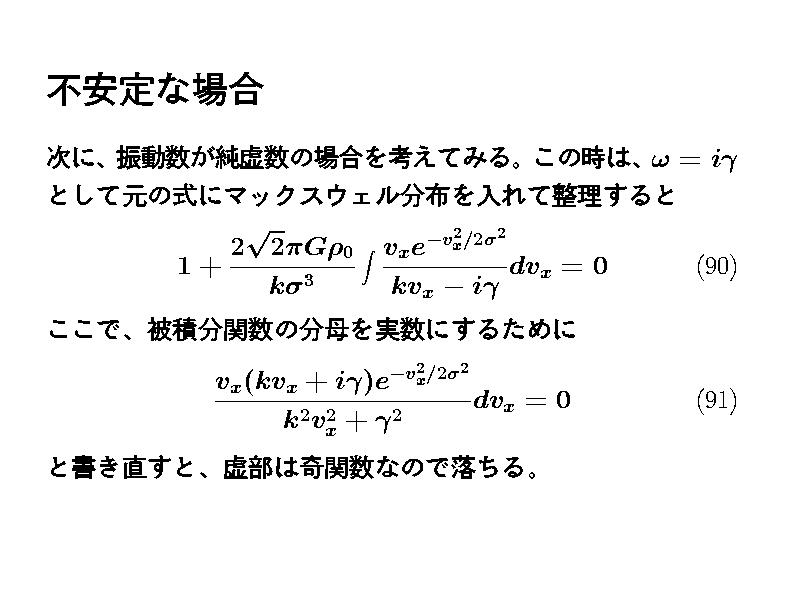 不安定な場合
次に、振動数が純虚数の場合を考えてみる。この時は、$\omega = i\gamma$
として元の式にマックスウェル分布を入れて整理すると
$1 + \frac{2\sqrt{2}\pi G\rho_0}{k\sigma^3} \int \frac{v_x e^{-v_x^2/2\sigma^2}}{kv_x - i\gamma} dv_x = 0$ (90)
ここで、被積分関数の分母を実数にするために
$\frac{v_x(kv_x + i\gamma)e^{-v_x^2/2\sigma^2}}{k^2v_x^2 + \gamma^2} dv_x = 0$ (91)
と書き直すと、虚部は奇関数なので落ちる。